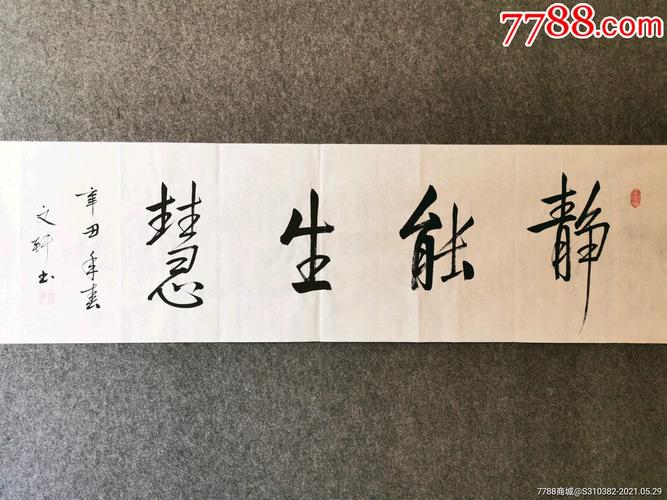 7788.com
静能生慧
辛丑年春
文轩书
7788商城@S310382-2021.05.29